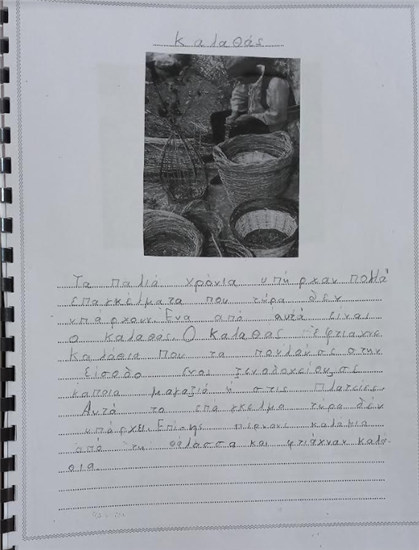 Καλαθάς
Τα παλιά χρόνια υπήρχαν πολλά
επαγκελματα που τώρα δεν
υπάρχουν. Ενα από αυτά είναι
ο καλαθάς. Ο καλαθας έφτιαχνε
καλάθια που τα πουλούσε στην
είσοδο ενος ξενοδοχείου, σε
κάποια μαγαζιά ή στις πλατείες.
Αυτό το επάγκελμα τώρα δεν
υπάρχει. Επίσης πέρναν καλαμια
από τη θάλασσα και φτιάχναν καλα-
θια.